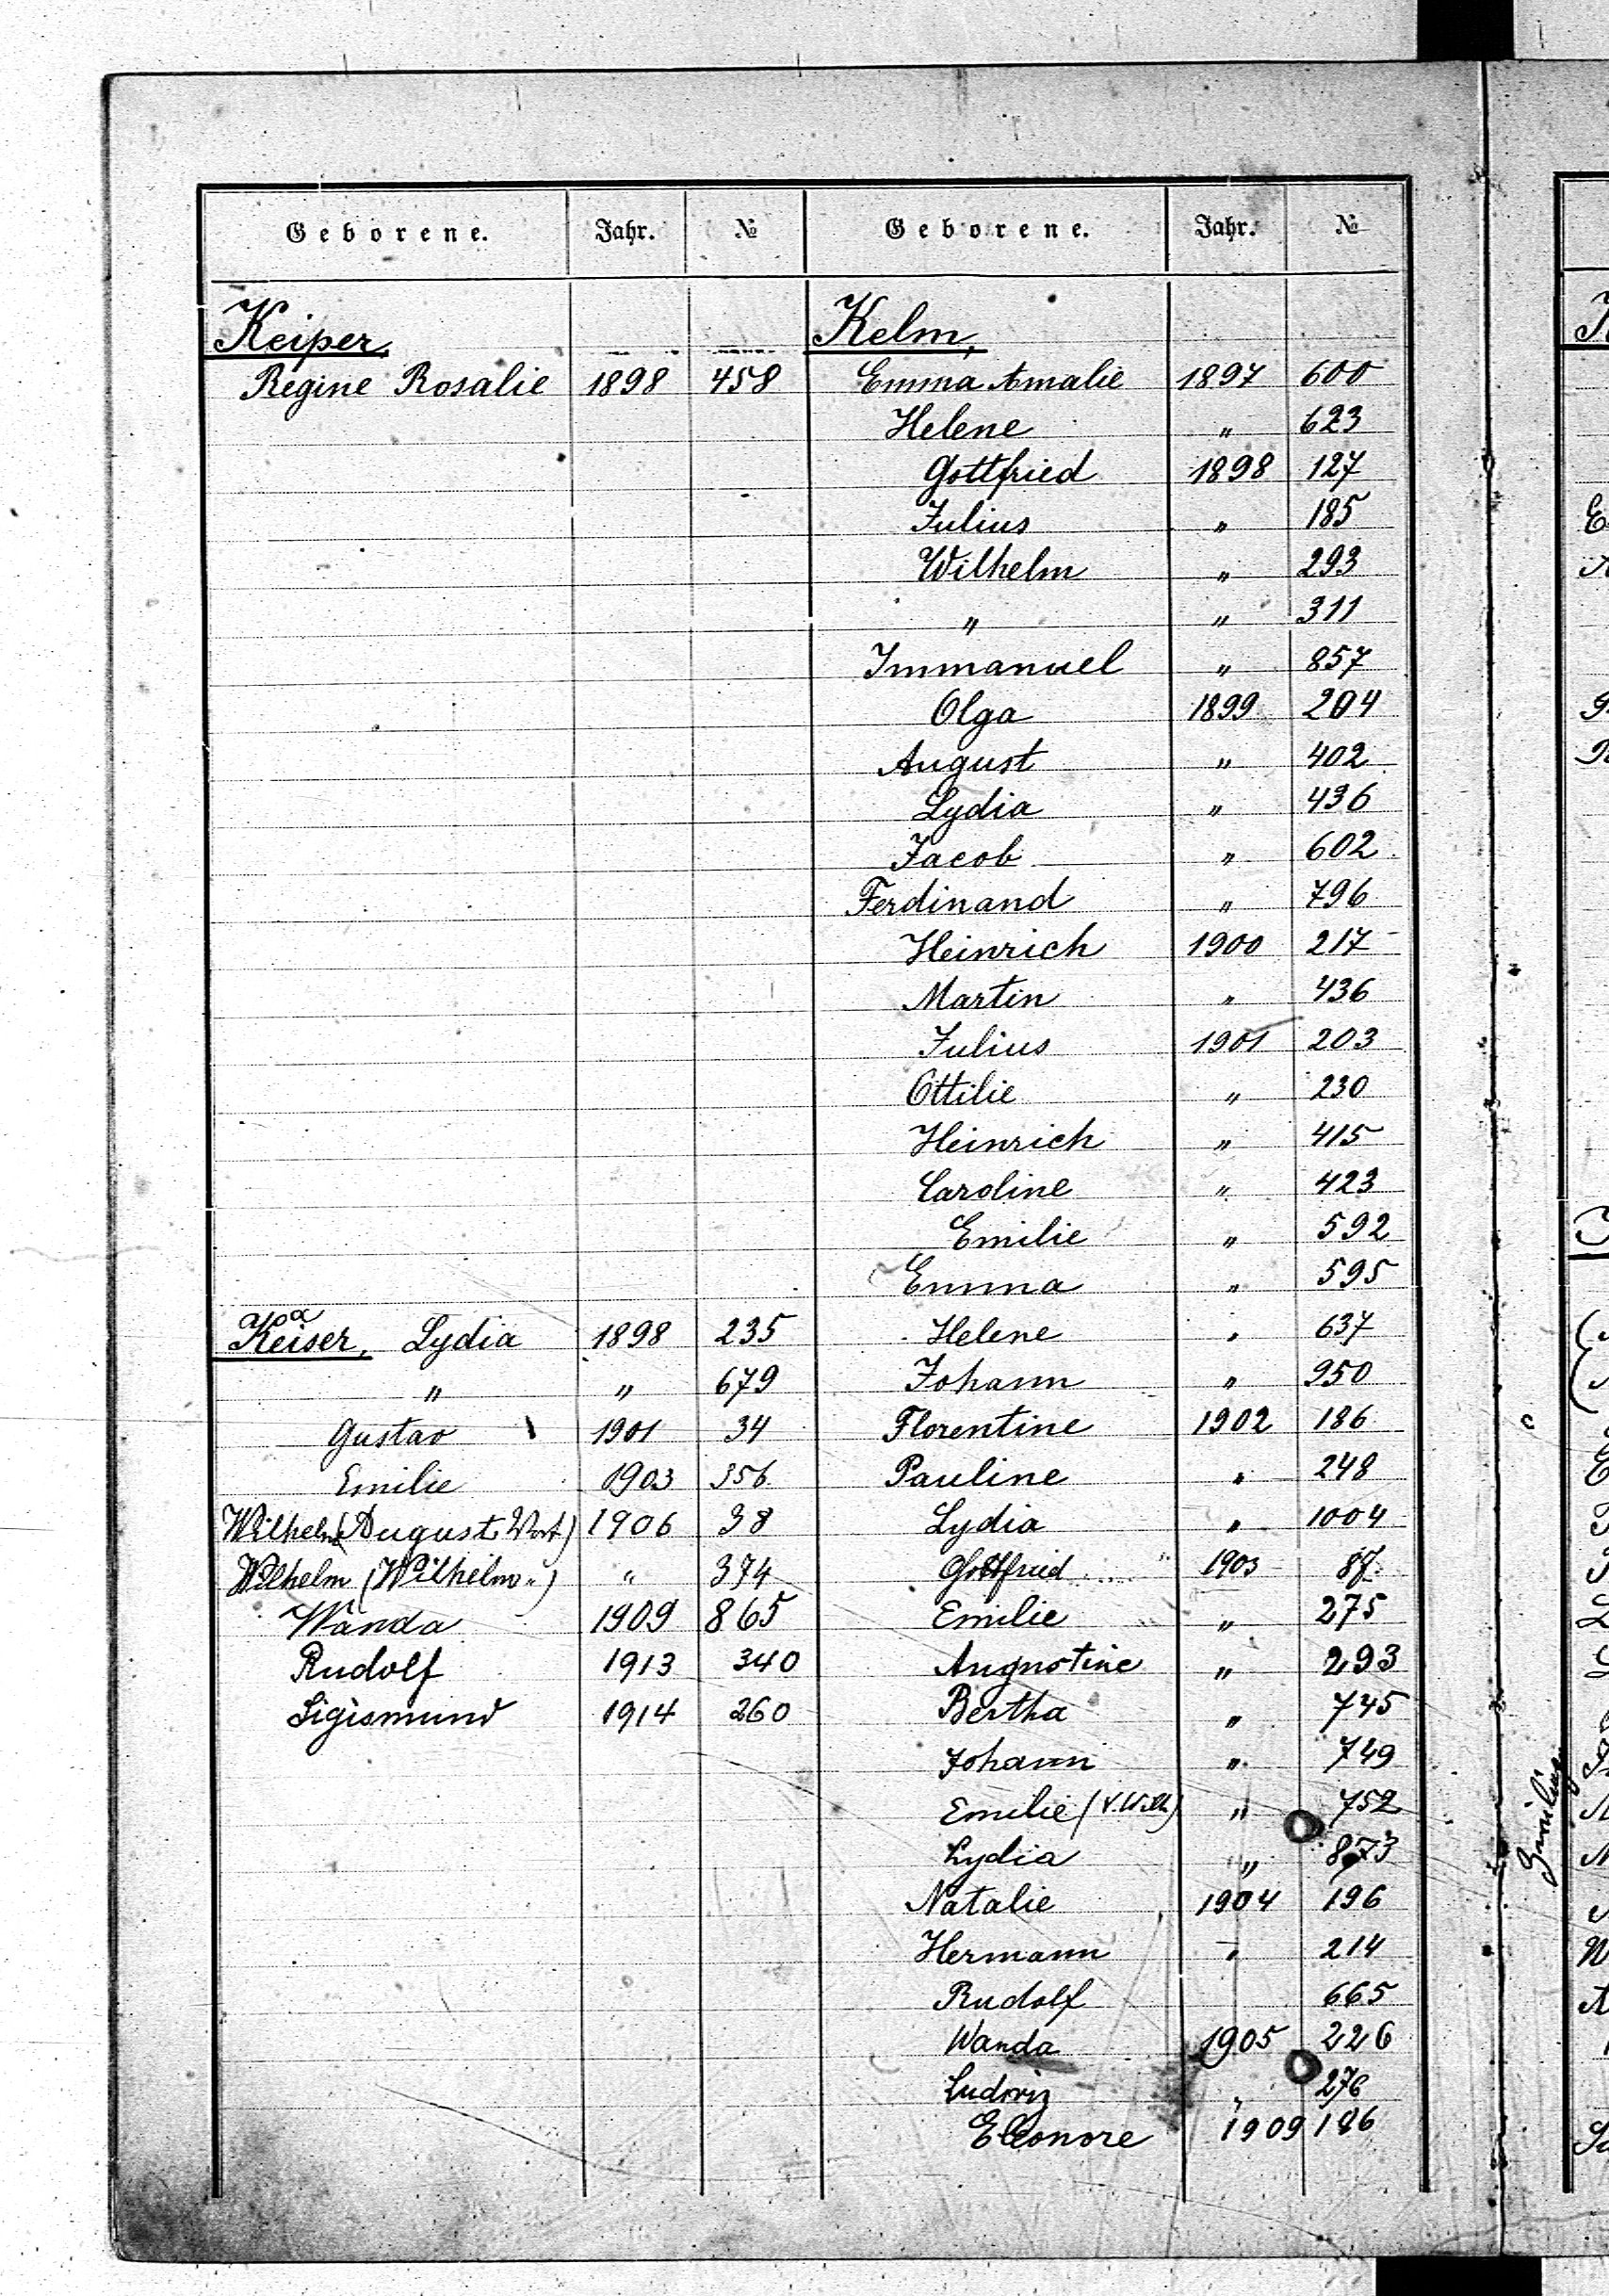 Geborene. Jahr. №
Keiper,
Regine Rosalie 1898 458
Keiser, Lydia 1898 235
a
" " 679
Gustav 1901 34
Emilie 1903 356
Wilhelm (August 1906 38
Wilhelm (Wilhelm ") " 374
Wanda 1909 865
Rudolf 1913 340
Sigismund 1914 260
Geborene. Jahr. №
Kelm,
Emma Amalie 1897 600
Helene " 623
Gottfried 1898 127
Julius " 185
Wilhelm " 293
" " 311
Immanuel " 857
Olga 1899 204
August " 402
Lydia " 436
Jacob " 602
Ferdinand " 796
Heinrich 1900 217
Martin " 436
Julius 1901 203
Ottilie " 230
Heinrich " 415
Caroline " 423
Emilie " 592
Emma " 595
Helene " 637
Johann " 950
Florentine 1902 186
Pauline " 248
Lydia " 1004
Gottfried 1903 87
Emilie " 275
Augustine " 293
Bertha " 745
Johann " 749
Emilie (V. Wilh) " 752
Lydia " 873
Natalie 1904 196
Hermann " 214
Rudolf 665
Wanda 1905 226
Ludwig " 276
Eleonore 1909 186